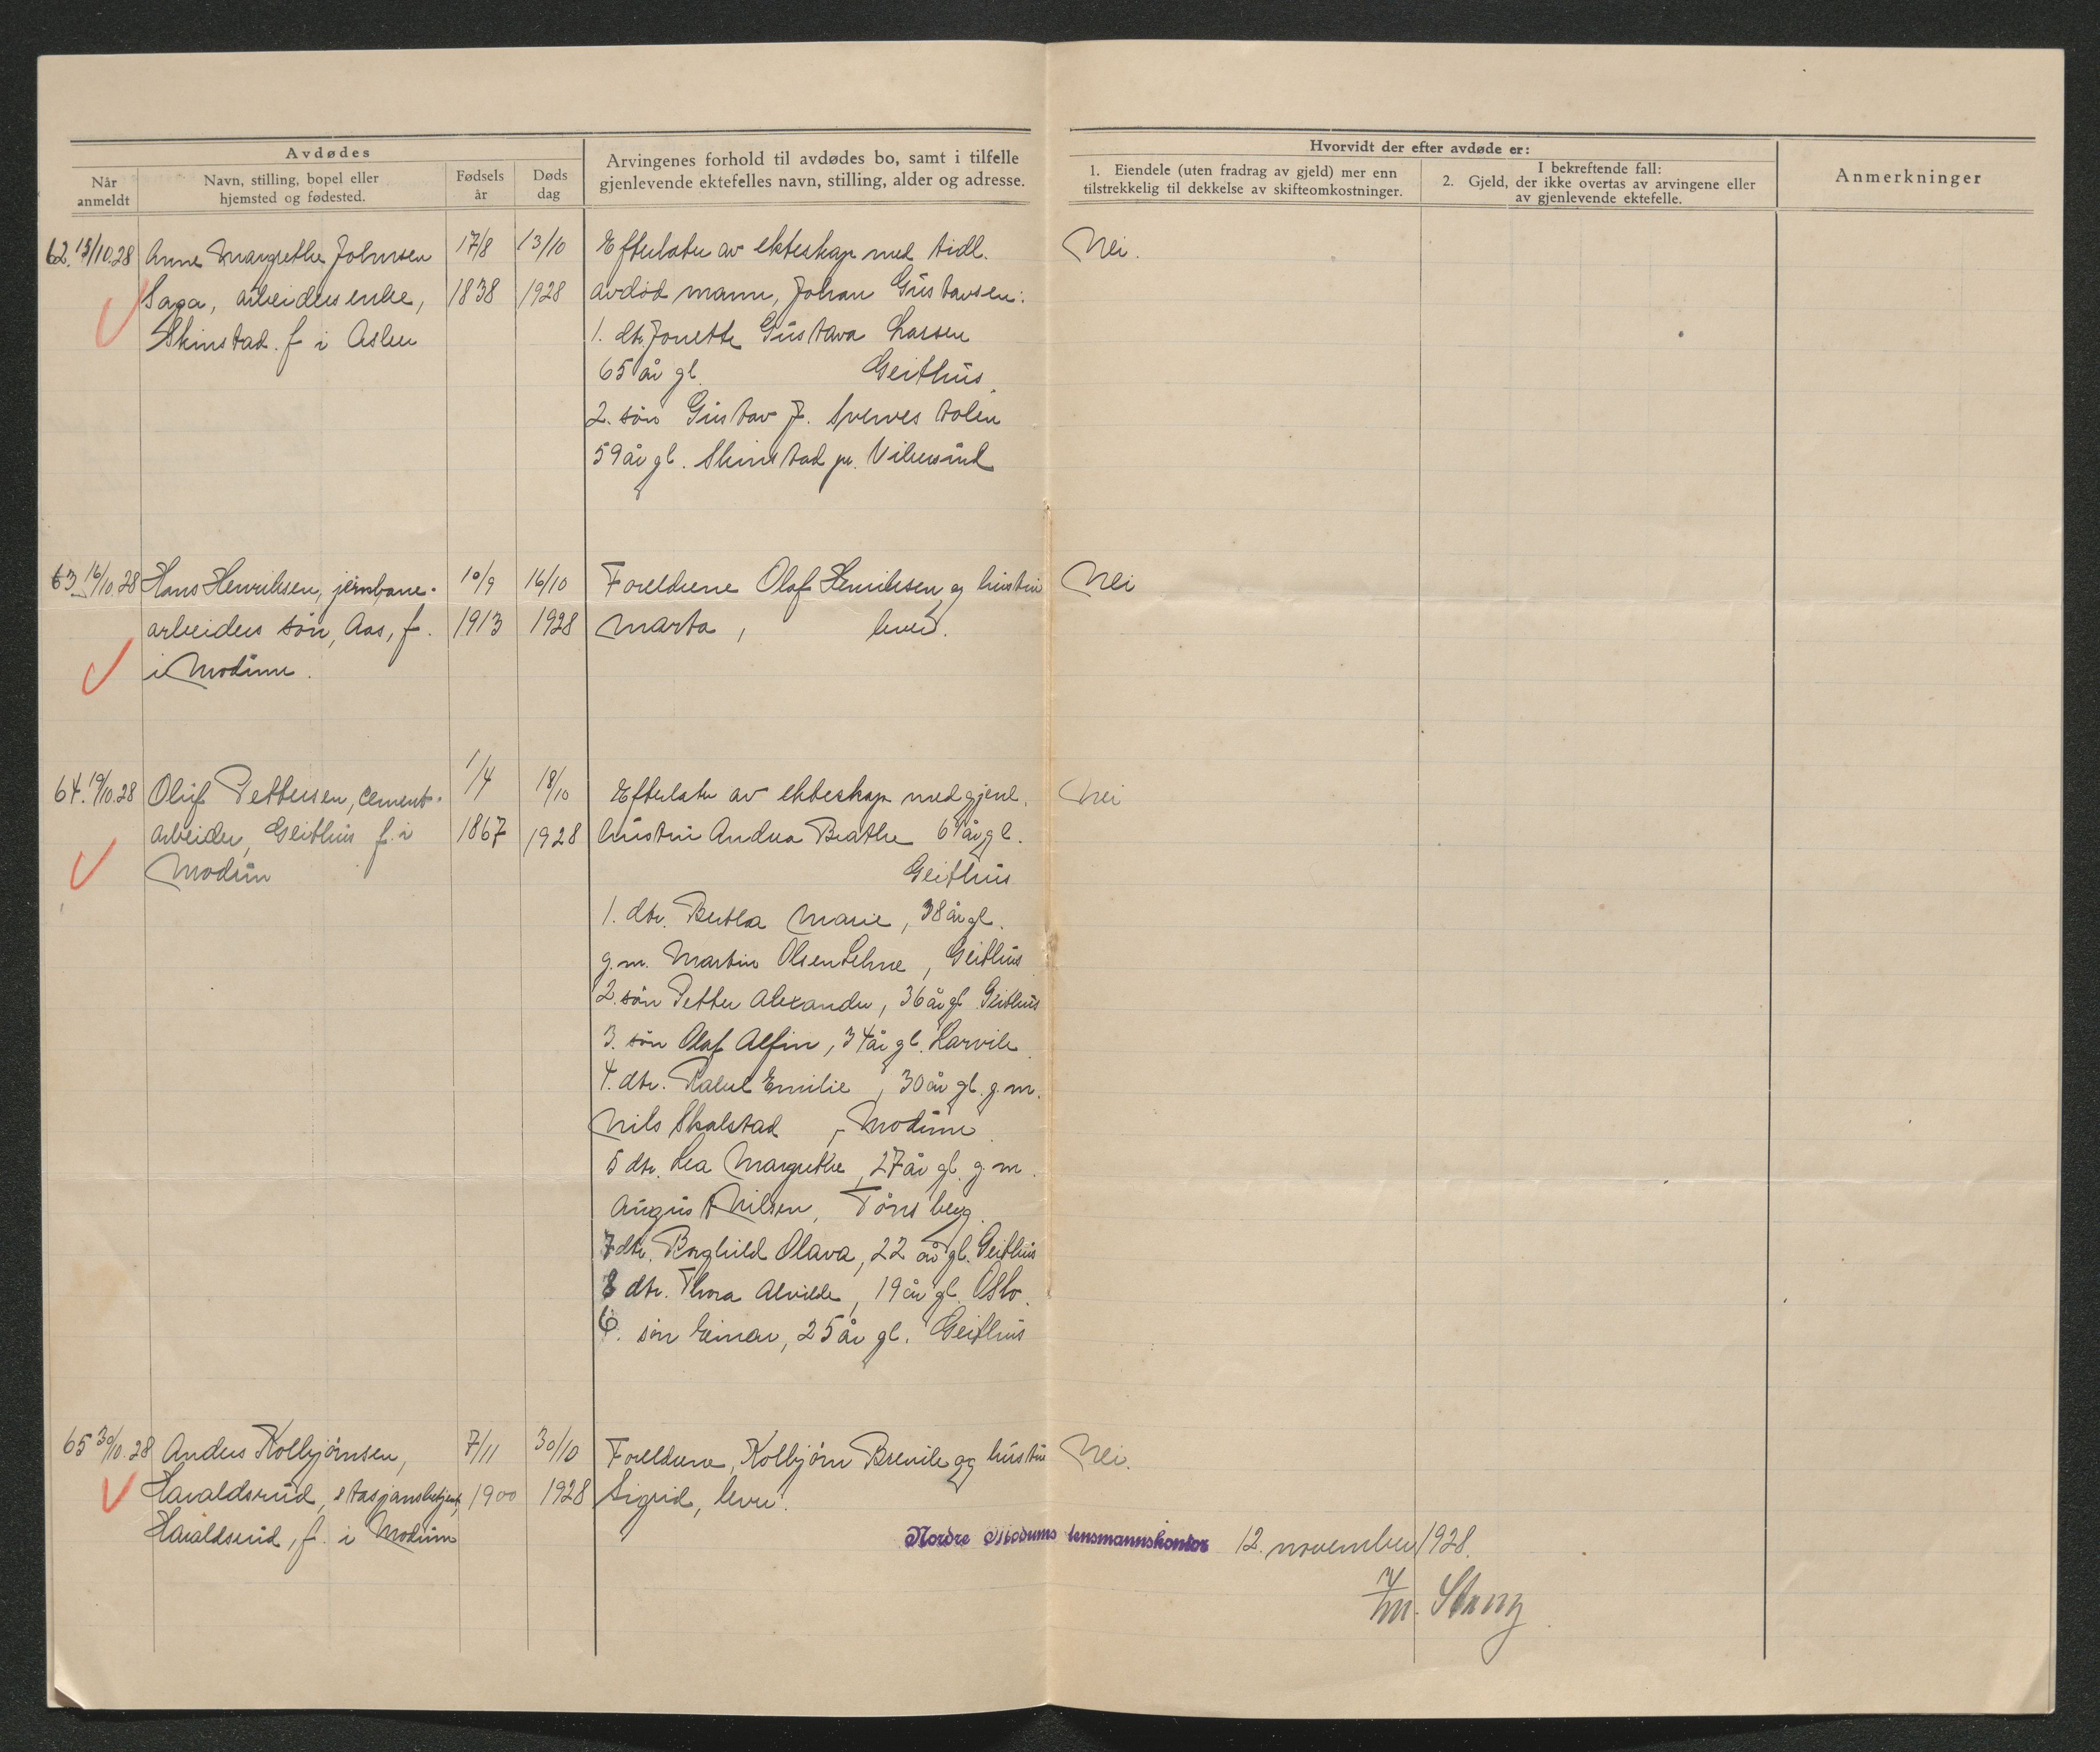 Avdødes
Når anmeldt
Navn, stilling, bopel eller hjemsted og fødested.
Fødsels år
Døds dag
Arvingenes forhold til avdødes bo, samt i tilfelle
gjenlevende ektefelles navn, stilling, alder og adresse.
Hvorvidt der efter avdøde er:
1. Eiendele (uten fradrag av gjeld) mer enn
tilstrekkelig til dekkelse av skifteomkostninger.
I bekreftende fall:
2. Gjeld, der ikke overtas av arvingene eller
av gjenlevende ektefelle.
Anmerkninger
62. 15/10.28 Anne Margrethe Johnsen 17/8 13/10
Saga, arbeidersenke, 1838 1928
Skinstad. f i Asker
Efterlater av ekteskap med tidl.
avdød mann, Johan Gustavsen:
1. dtr. Jonette Gustava Larsen
65 år gl. Geithus.
2. søn Gustav J.
59 år gl. Skinstad pr. Vikersund
Nei.
63 16/10.28 Hans Henriksen, jernbane- 10/9 16/10
arbeiders søn, Aas, f. 1913 1928
i Modum.
Foreldrene Olaf Henriksen og hustru
Marta, lever.
Nei
64. 19/10.28 Oluf Pettersen, cement- 1/4 18/10
arbeider, Geithus f. i 1867 1928
Modum
Efterlater av ekteskap med gjenl.
hustru Andrea Beathe 61 år gl.
Geithus
1. dtr. Bertha Marie, 38 år gl.
g.m. Martin Olsen Lehne, Geithus
2. søn Petter Alexander, 36 år gl Geithus
3. søn Olaf Alfin, 34 år gl. Larvik
4. dtr. Rakel Emilie, 30 år gl. g.m.
Nils Skalstad, Modum.
5 dtr. Lea Margrethe, 27 år gl. g.m.
August Nilsen, Tønsberg.
7 dtr. Borghild Olava, 22 år gl. Geithus
8 dtr. Thora Alvilde, 19 år gl. Oslo.
6. søn Einar, 25 år gl. Geithus
Nei
65 30/10.28 Anders Kolbjørnsen, 7/11 30/10
Haraldsrud, stasjonsbetjent, 1900 1928
Haraldsrud, f. i Modum
Foreldrene, Kolbjørn Brenile og hustru
Sigrid, lever.
Nei.
Nordre Modums lensmannskontor 12. november 1928.
M. Strang